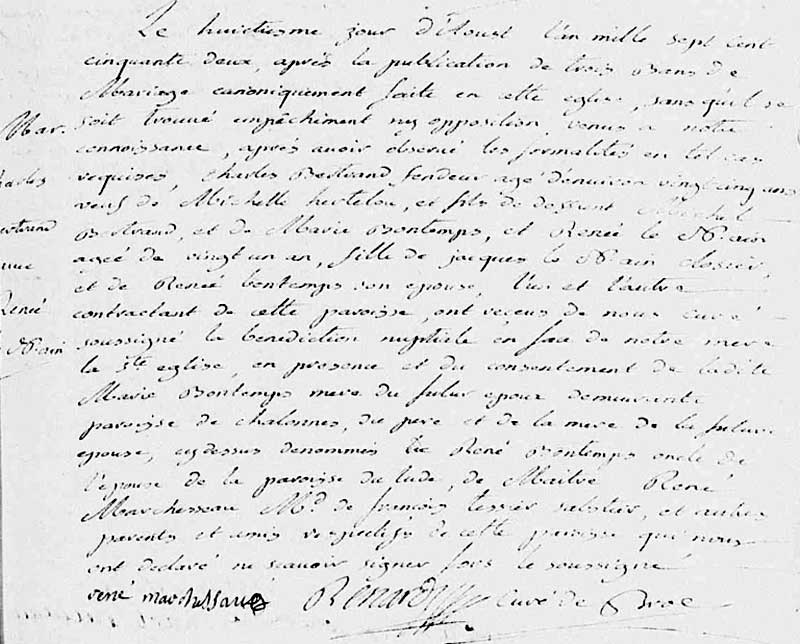 Le huictieme jour d'Aoust l'an mille sept cent
cinquante deux, après la publication de trois Bans de
Mariage canoniquement faite en cette eglise, sans qu'il se
Mar. soit trouvé empêchiment ny opposition venus a notre
connoissance, après avoir observé les formalités en tel cas
charles requises, charles Bertrand fendeur agé d'environ vingt cinq ans
veuf de Michelle hertelou, et fils de deffunt Michel
Bertrand, et de Marie Bontemps, et Renée le
agée de vingt un an, fille de jacques le closier,
et de Reneé bontemps son epouse, l'un et l'autre
Reneé contractant de cette paroisse, ont reçeus de nous curé
soussigné la benediction nuptiale en face de notre mere
la Ste eglise, en presence et du consentement de ladite
Marie Bontemps mere du futur epoux demeurante
paroisse de chalonnes, du pere et de la mere de la future
epouse, cydessus denommés de René Bontemps oncle de
l'epouse de la paroisse du lude, de Maitre René
Marchesseau Md de françois tessier sabotier, et autres
parents et amis respectifs de cette paroisse qui nous
ont declaré ne sçavoir signer fors le soussigné
rené marchessau Curé de Broc